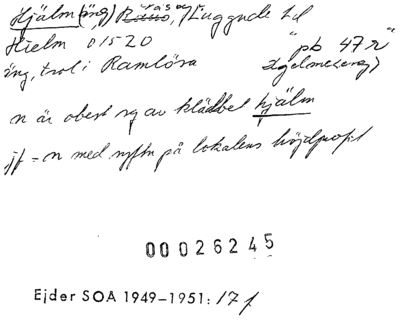 Hjälm (äng) Raus, Luggude hd
Hielm 01520 "pb 47 r"
äng, trol. i Ramlösa
n är obest sg av klädbet hjälm
jf -n med syftn på lokalens höjdprofil
00026245
Ejder SOA 1949-1951: 17 f